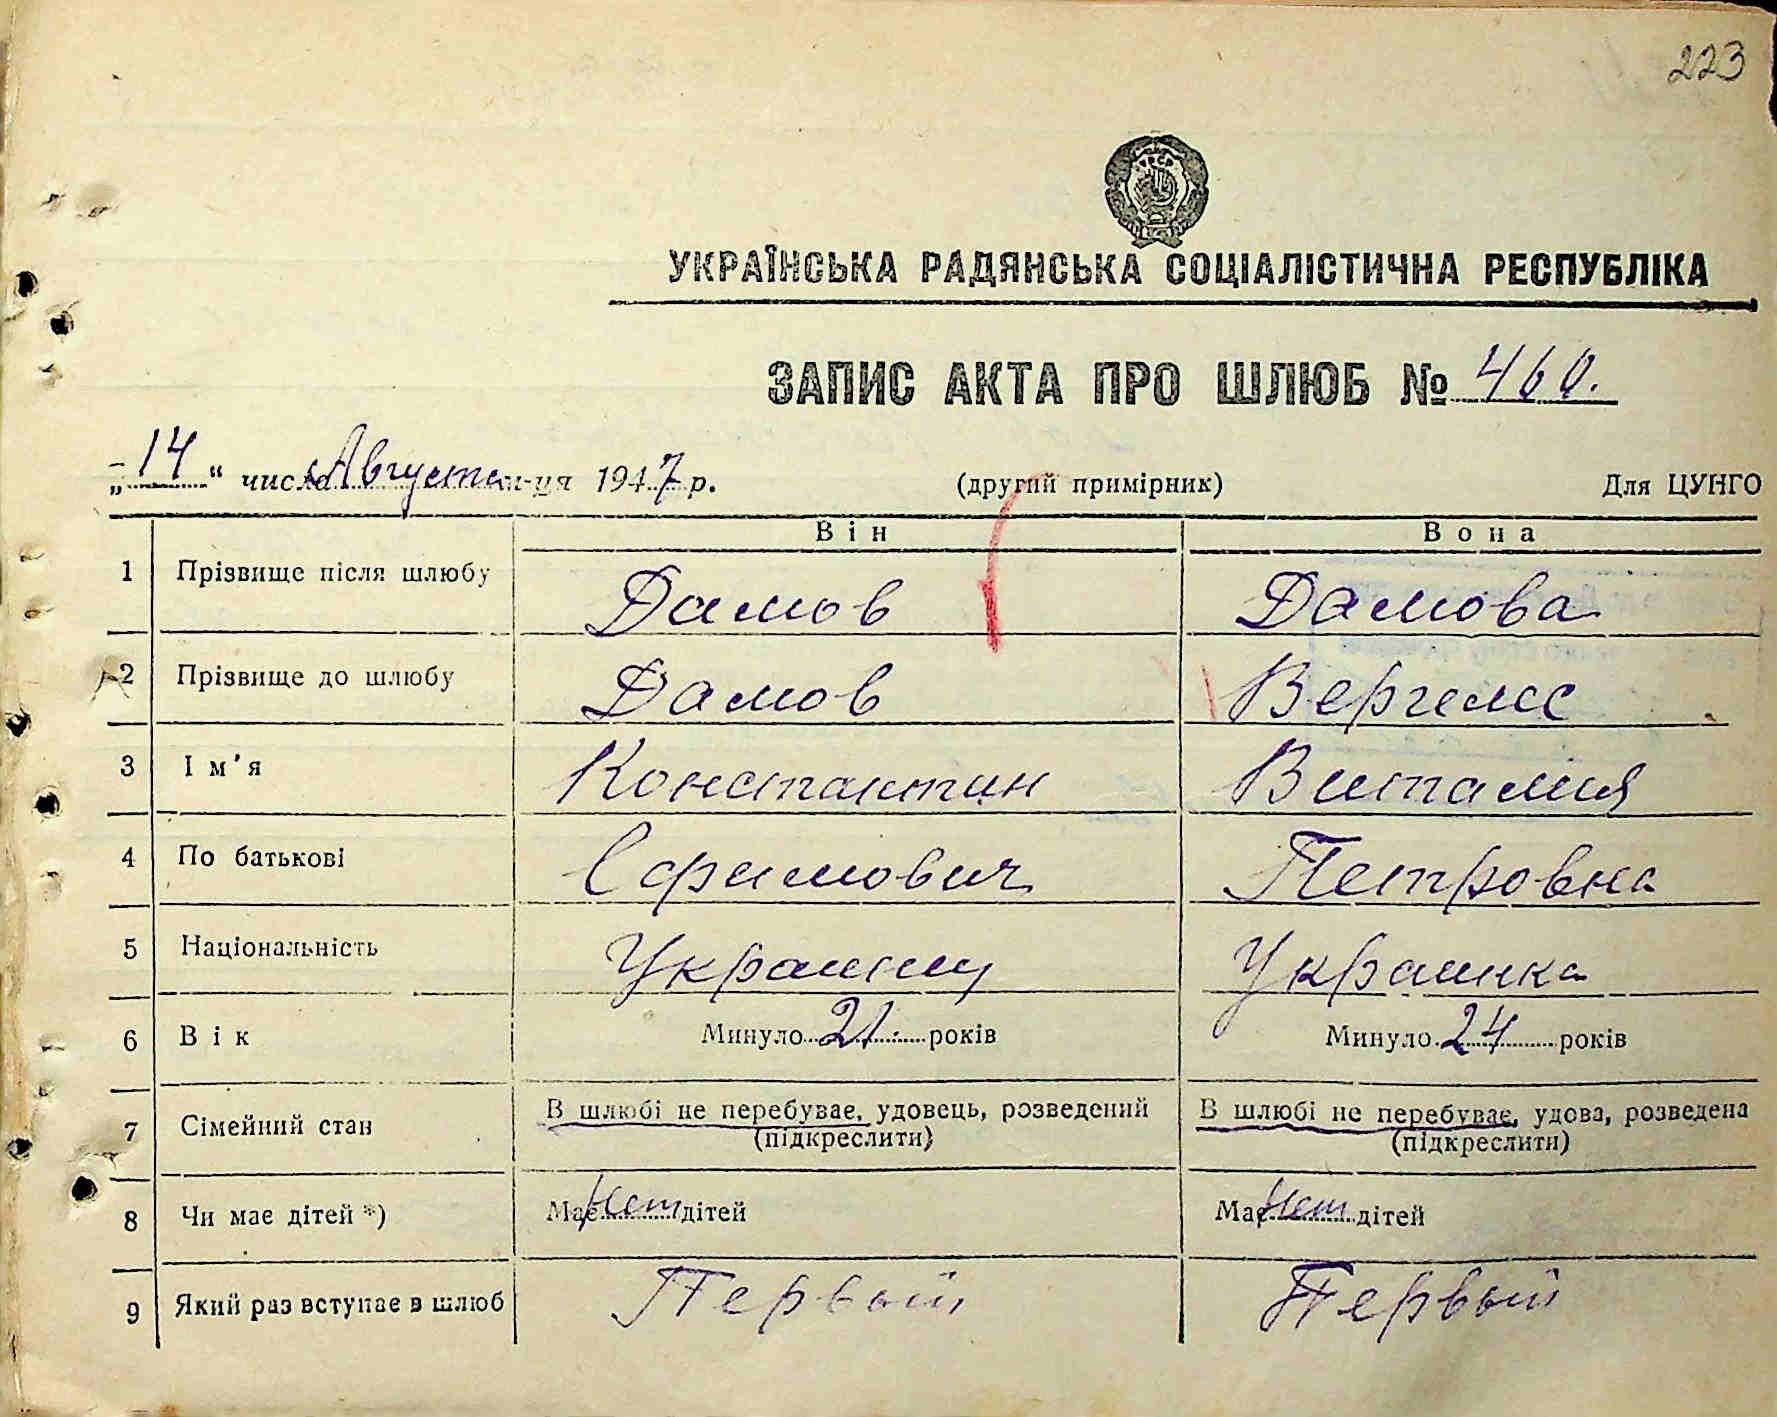 223
УКРАЇНСЬКА РАДЯНСЬКА СОЦІАЛІСТИЧНА РЕСПУБЛІКА
ЗАПИС АКТА ПРО ШЛЮБ № 460.
„14“ числа Августа м-ця 1947 р. (другий примірник) Для ЦУНГО
Він Вона
1 Прізвище після шлюбу Дамов Дамова
2 Прізвище до шлюбу Дамов Вергелес
3 Ім'я Константин Виталия
4 По батькові Ефимович Петровна
5 Національність Украинец Украинка
6 Вік Минуло 21 років Минуло 24 років
7 Сімейний стан В шлюбі не перебуває, удовець, розведений В шлюбі не перебуває, удова, розведена
(підкреслити) (підкреслити)
8 Чи має дітей *) Має Нет дітей Має Нет дітей
9 Який раз вступає в шлюб Первый Первый